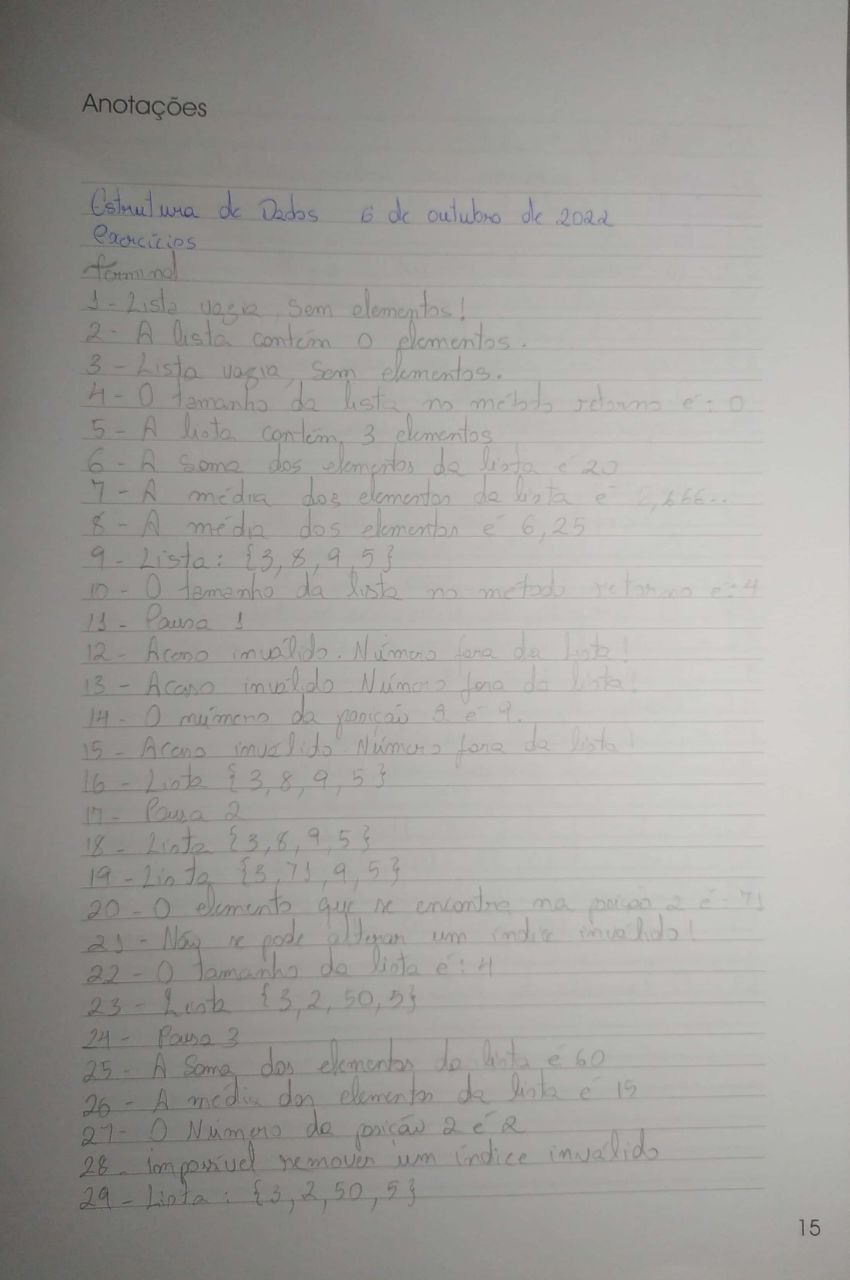 Anotações
Estrutura de Dados 6 de outubro de 2022
Exercícios
terminal
1 - Lista vazia, sem elementos!
2 - A lista contém 0 elementos.
3 - Lista vazia, sem elementos.
4 - O tamanho da lista no método retorno é: 0
5 - A lista contém, 3 elementos
6 - A soma dos elementos da lista é 20
7 - A média dos elementos da lista é ,666..
8 - A média dos elementos é 6,25
9 - Lista: {3, 8, 9, 5}
10 - O tamanho da lista no metodo retorno é: 4
11 - Pausa 1
12 - Acesso inválido. Número fora da lista!
13 - Acesso inválido. Número fora da lista!
14 - O número da posição é 9.
15 - Acesso inválido. Número fora da lista!
16 - Lista {3, 8, 9, 5}
17 - Pausa 2
18 - Lista {3, 8, 9, 5}
19 - Lista {3, 71, 9, 5}
20 - O elemento que se encontra na posição 2 é 71
21 - Não se pode alterar um índice inválido!
22 - O tamanho da lista é: 4
23 - Lista {3, 2, 50, 5}
24 - Pausa 3
25 - A Soma dos elementos da lista é 60
26 - A média dos elementos da lista é 15
27 - O Número da posição 2 é 2
28 - impossível remover um índice inválido
29 - Lista: {3, 2, 50, 5}
15